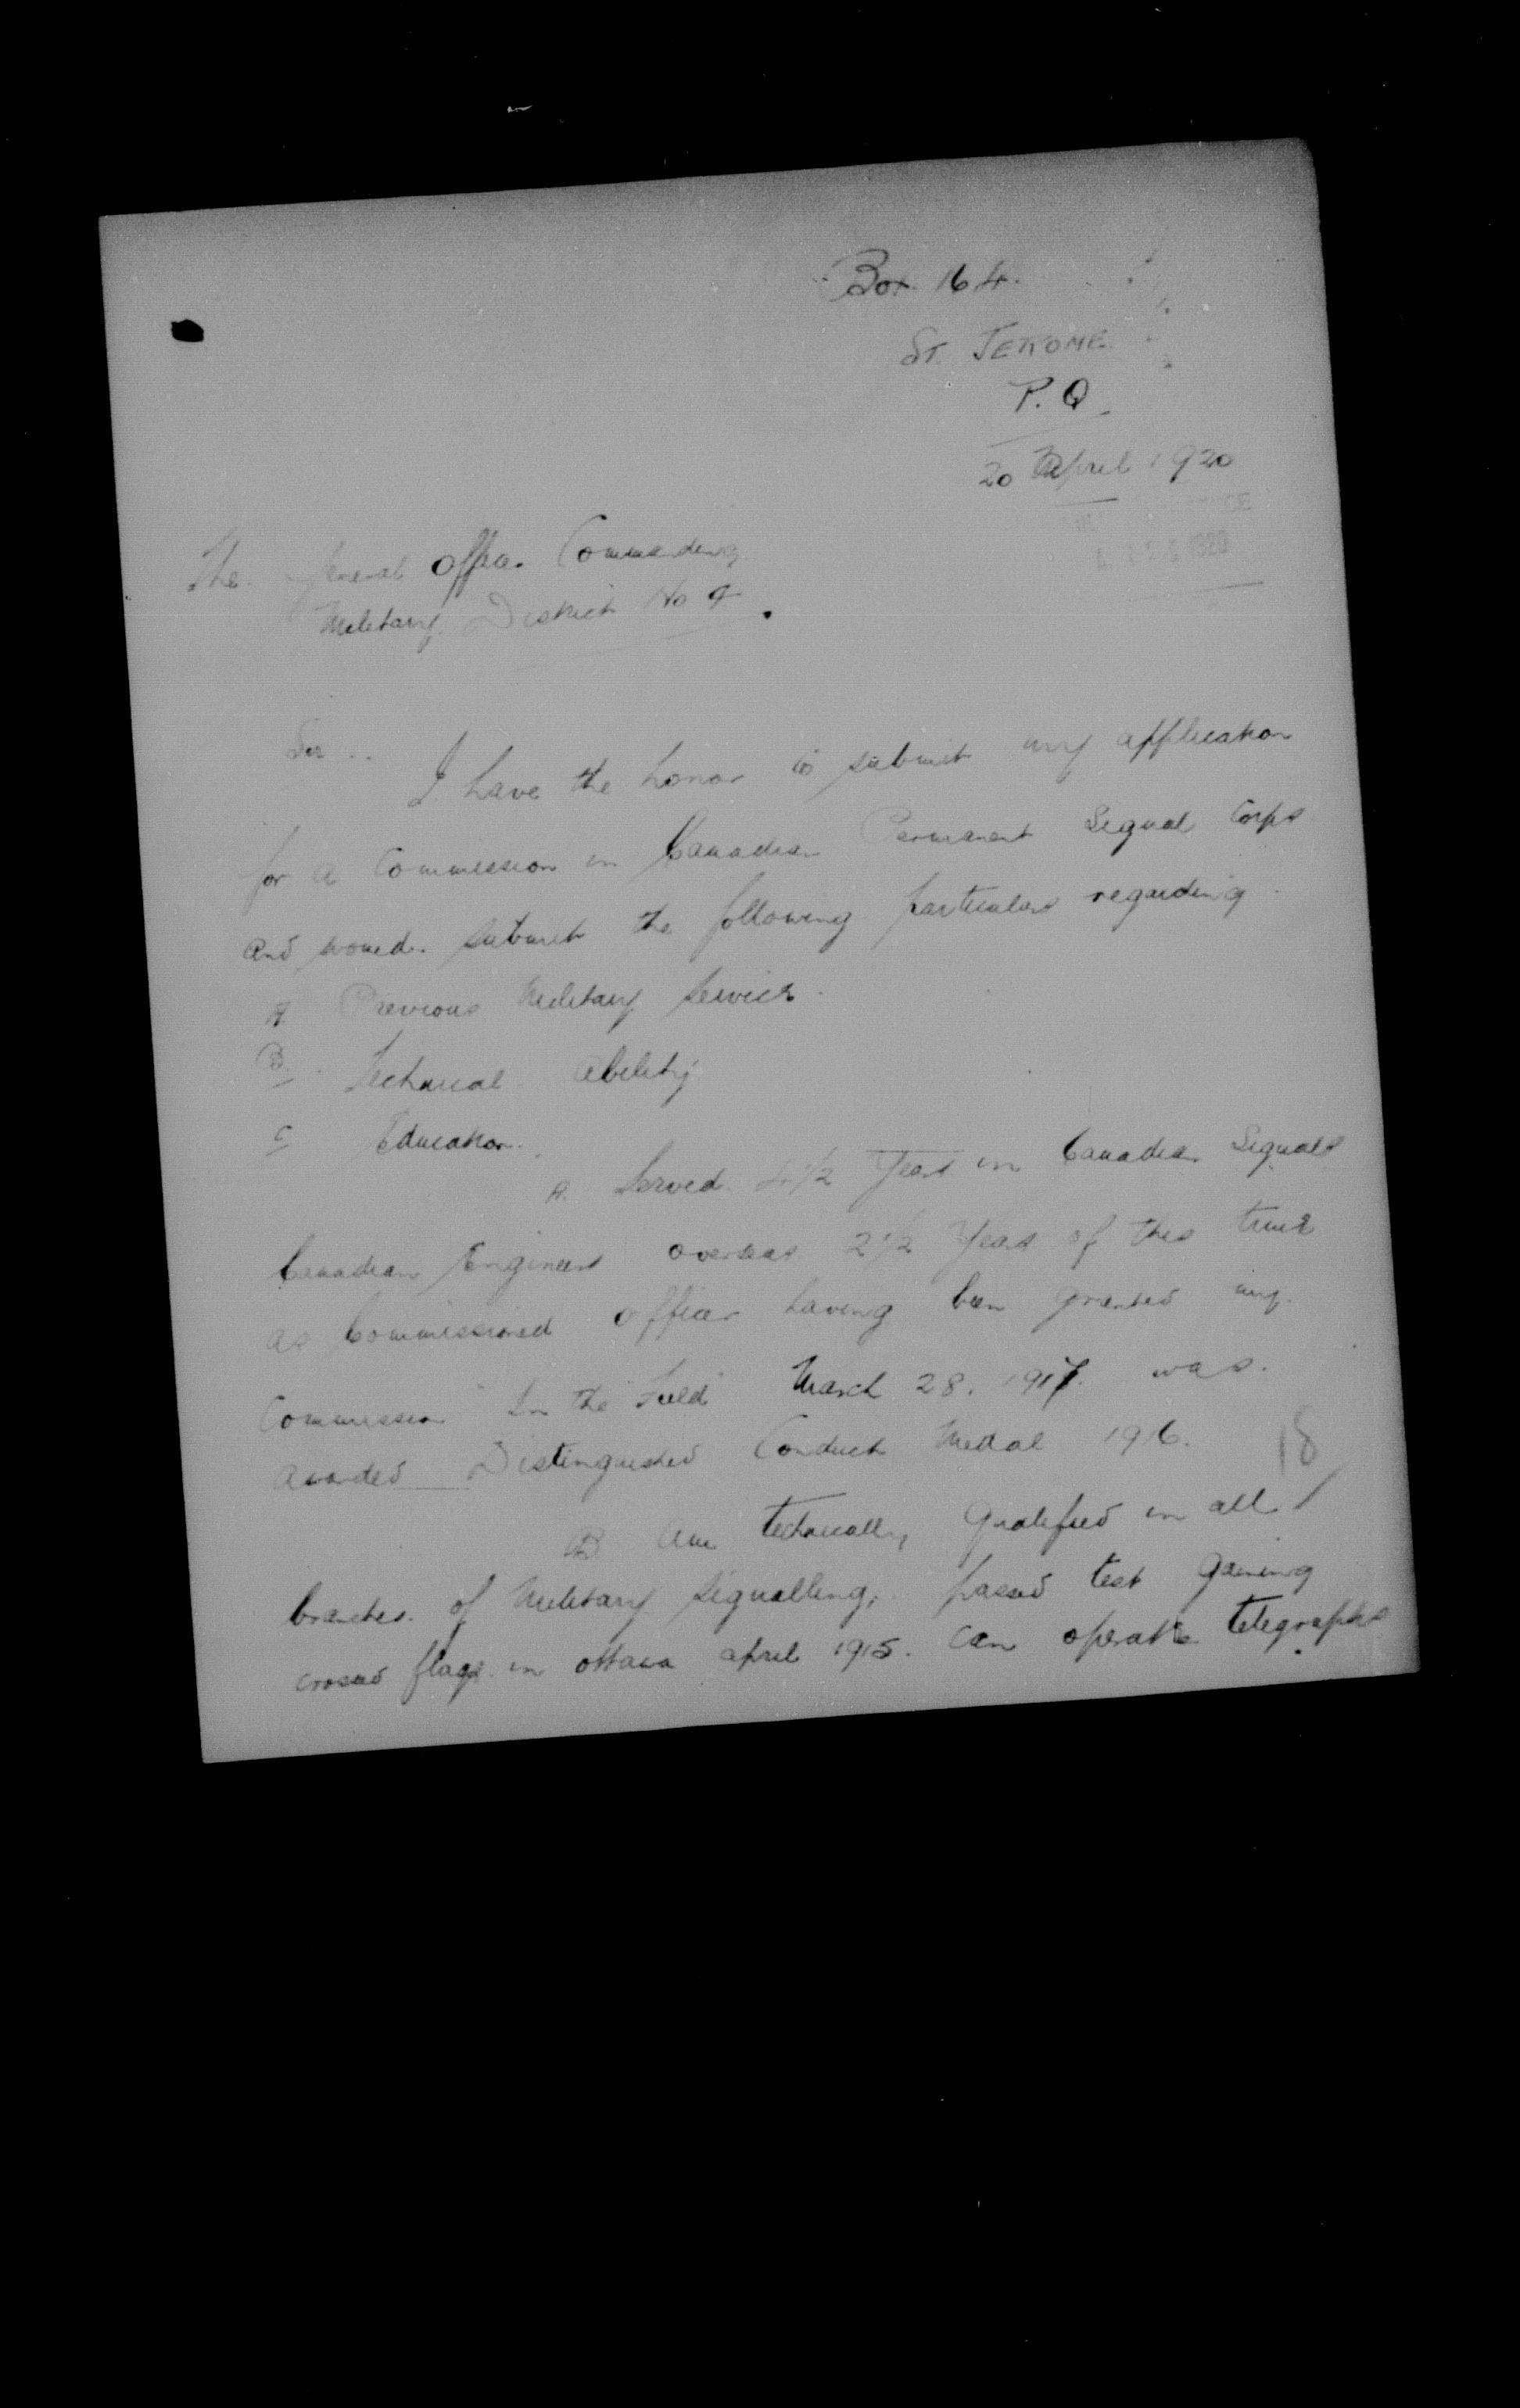 Box. 164.
ST. JEROME.
P.Q.
20 April 1920
1920
The General Officer Commanding
Military District No 4.
Sir..
I have the honor to submit my application
for a Commission in Canadian Permanent Signal Corps
and would submit the following particulars regarding
A Previous Military Service.
B. Technical ability
C Education.
A. Served 4 1/2 Years in Canadian Signals
Canadian Engineers overseas 2 1/2 Years of this time
as Commissioned officer having been granted my
Commission "In the Field" March 28. 1917. was.
awarded Distinguished Conduct Medal 1916.
18
B Am technically qualified in all
branches of Military Signalling, passed test gaining
crossed flags in ottawa april 1915. Can operate telegraphs